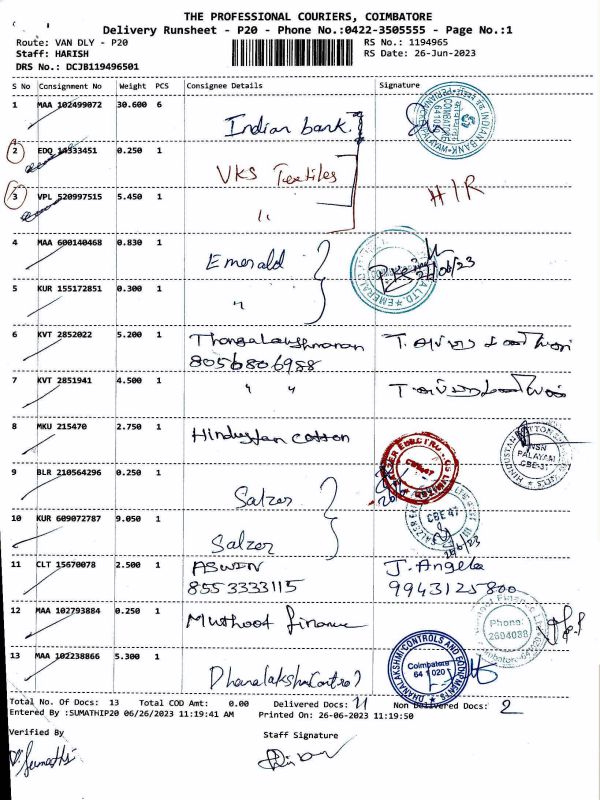 THE PROFESSIONAL COURIERS, COIMBATORE
Delivery Runsheet - P20 - Phone No.:0422-3505555 - Page No.:1
Route: VAN DLY - P20
Staff: HARISH
DRS No.: DCJB119496501
RS No.: 1194965
RS Date: 26-Jun-2023
S No Consignment No Weight PCS Consignee Details Signature
1 MAA 102499072 30.600 6 Indian bank.
2 EDQ 14333451 0.250 1 VKS Textiles
3 VPL 520997515 5.450 1 " H/R
4 MAA 600140468 0.830 1 Emerald
5 KUR 155172851 0.300 1 "
6 KVT 2852022 5.200 1
8056806988
7 KVT 2851941 4.500 1 " "
8 MKU 215470 2.750 1 Hindustan cotton
NSN
PALAYAM
CBE-31
9 BLR 210564296 0.250 1 Salzer
CBE 47
10 KUR 609072787 9.050 1 Salzer
11 CLT 15670078 2.500 1 ASWIN J. Angela
8553333115 9943125800
12 MAA 102793884 0.250 1 Muthoot finance
Phone:
2604038
13 MAA 102238866 5.300 1
DHANALAKSHMI CONTROLS AND EQUIPMENTS
Coimbatore
641 020
Total No. Of Docs: 13 Total COD Amt: 0.00 Delivered Docs: 11 Non Delivered Docs: 2
Entered By :SUMATHIP20 06/26/2023 11:19:41 AM Printed On: 26-06-2023 11:19:50
Verified By Staff Signature